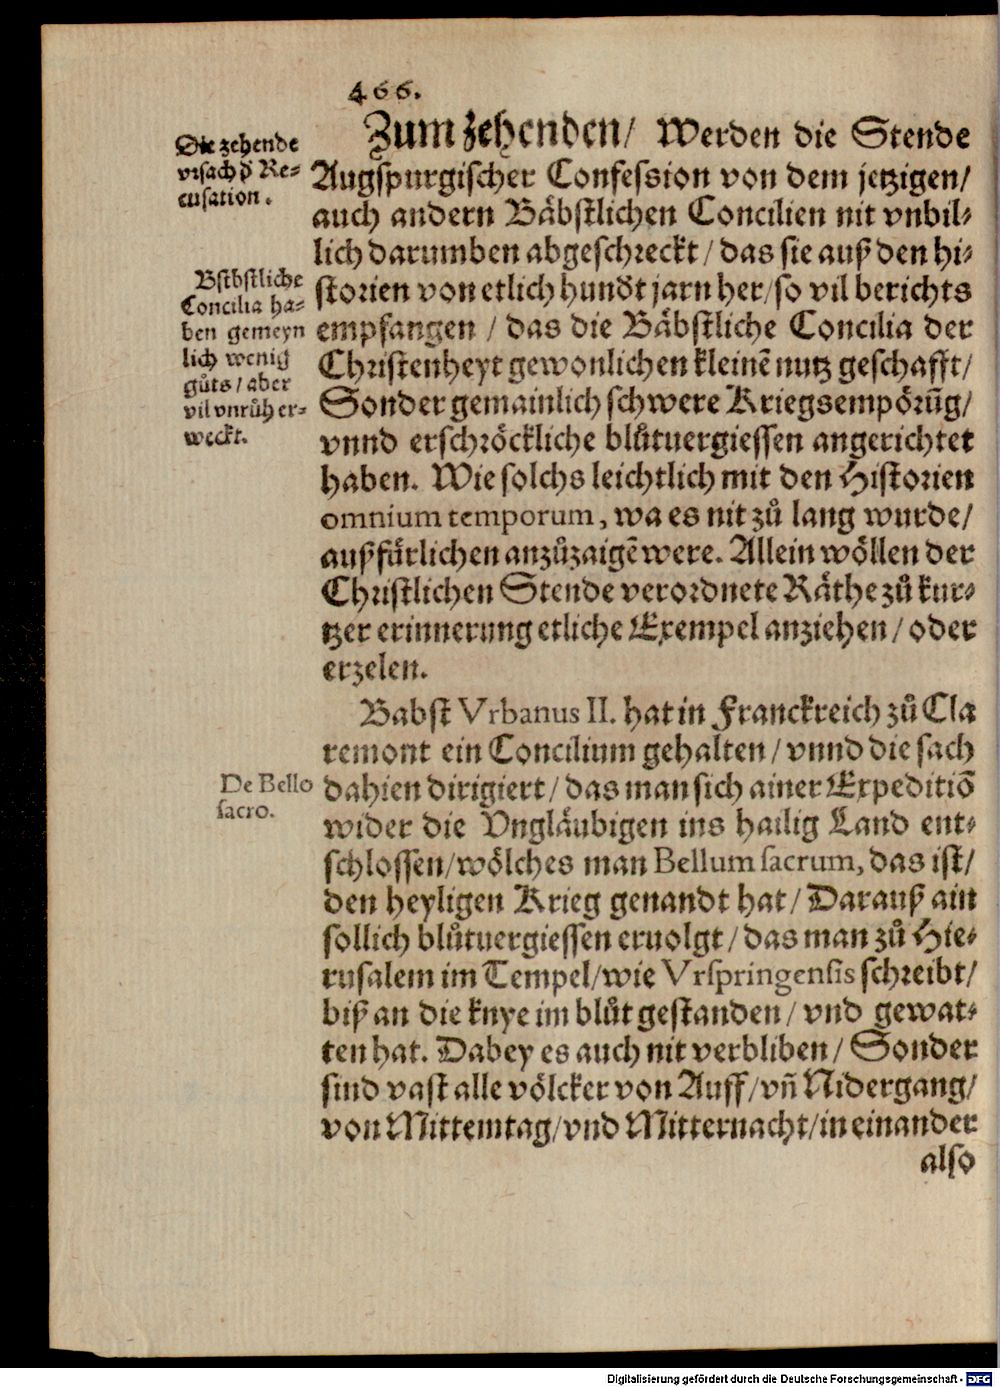 466.
Die zehende
vrsach d̕ Re-
cusation.
Zum zehenden/ Werden die Stende
Augspurgischer Confession von dem jetzigen/
auch andern Bäbstlichen Concilien nit vnbil-
lich darumben abgeschreckt/ das sie auß den hi-
Bstbstliche
Concilia ha-
ben gemeyn
lich wenig
gůts/ aber
vil vnrůh er-
weckt.
storien von etlich hundt jarn her/ so vil berichts
empfangen/ das die Bäbstliche Concilia der
Christenheyt gewonlichen kleinē nutz geschafft/
Sonder gemainlich schwere Kriegsempörūg/
vnnd erschröckliche blůtuergiessen angerichtet
haben. Wie solchs leichtlich mit den Historien
omnium temporum, wa es nit zů lang wurde/
außfürlichen anzůzaigē were. Allein wöllen der
Christlichen Stende verordnete Räthe zů kur-
tzer erinnerung etliche Exempel anziehen/ oder
erzelen.
Babst Vrbanus II. hat in Franckreich zů Cla
remont ein Concilium gehalten/ vnnd die sach
De Bello
sacro.
dahien dirigiert/ das man sich ainer Expeditiō
wider die Vngläubigen ins hailig Land ent-
schlossen/ wölches man Bellum sacrum, das ist/
den heyligen Krieg genandt hat/ Darauß ain
sollich blůtuergiessen eruolgt/ das man zů Hie-
rusalem im Tempel/ wie Vrspringensis schreibt/
biß an die knye im blůt gestanden/ vnd gewat-
ten hat. Dabey es auch nit verbliben/ Sonder
sind vast alle völcker von Auff/ vn̄ Nidergang/
von Mittemtag/ vnd Mitternacht/ in einander
also
Digitalisierung gefördert durch die Deutsche Forschungsgemeinschaft - DFG